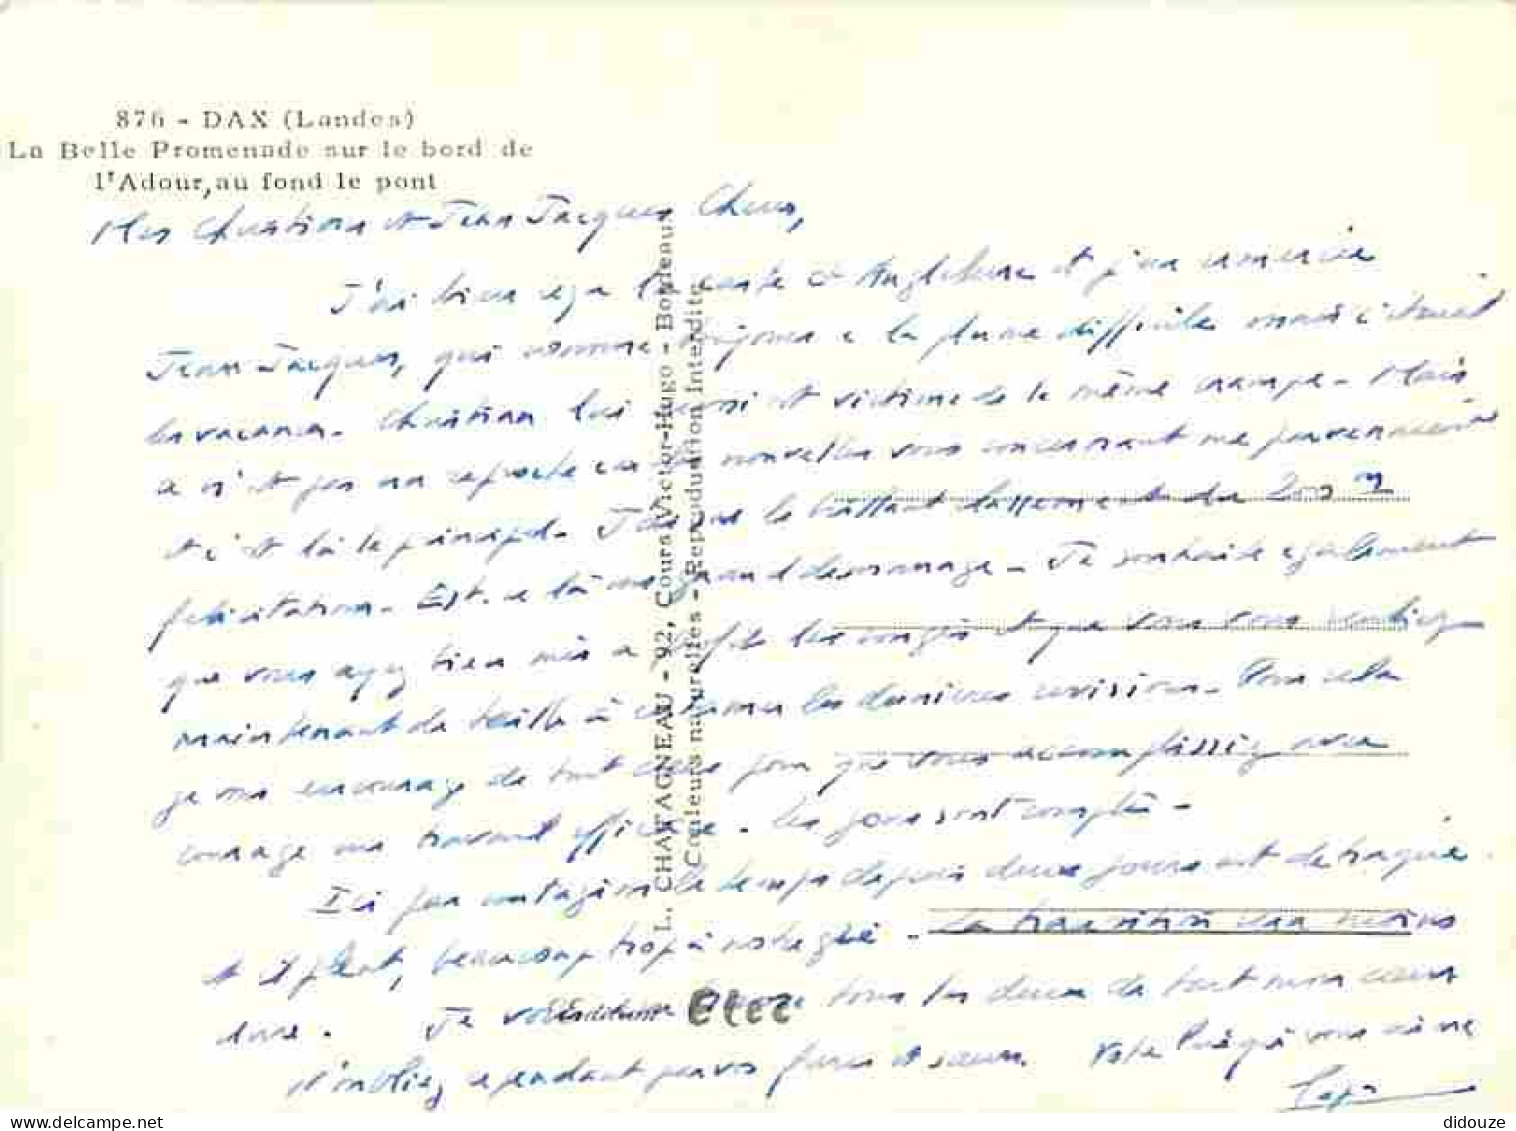 876 - DAX (Landes)
La Belle Promenade sur le bord de
l'Adour, au fond le pont
Mes Christian et Jean Jacques Chers,
J'ai bien reçu la carte d'Angleterre et j'en remercie
Jean Jacques, qui comme toujours a la plume difficile mais c'était
les vacances. Christian lui aussi est victime de la même crampe. Mais
ce n'est pas un reproche car les nouvelles vous concernant me parviennent
et c'est là le principal. J'ai le brillant classement du 200 m
félicitations. Est-ce là un grand Je souhaite également
que vous ayez bien mis à profit les congés et que vous vous sentiez
maintenant de taille à entamer les dernières révisions. Pour cela
je vous encourage de tout cœur pour que vous accomplissiez avec
courage un travail efficace. Les jours sont comptés.
Ici par contagion le temps depuis deux jours est détraqué
et il pleut, beaucoup trop à notre gré. La transition
dure. Je vous tous les deux de tout mon cœur
N'oubliez cependant pas vos frères et sœurs. Votre qui vous aime
L. CHATAGNEAU - 92, Cours Victor-Hugo - Bordeaux
Couleurs naturelles - Reproduction Interdite
delcampe.net
didouze